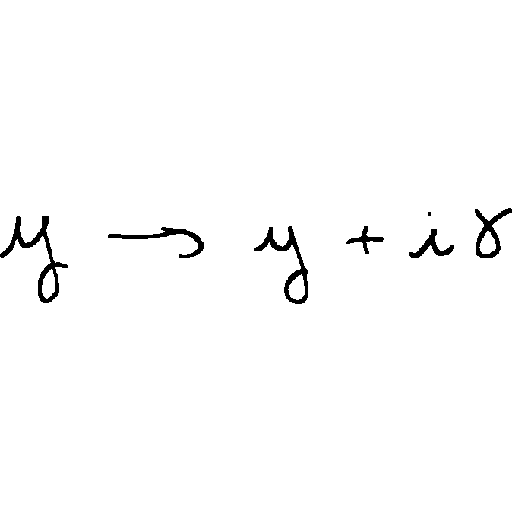 y → y + i γ